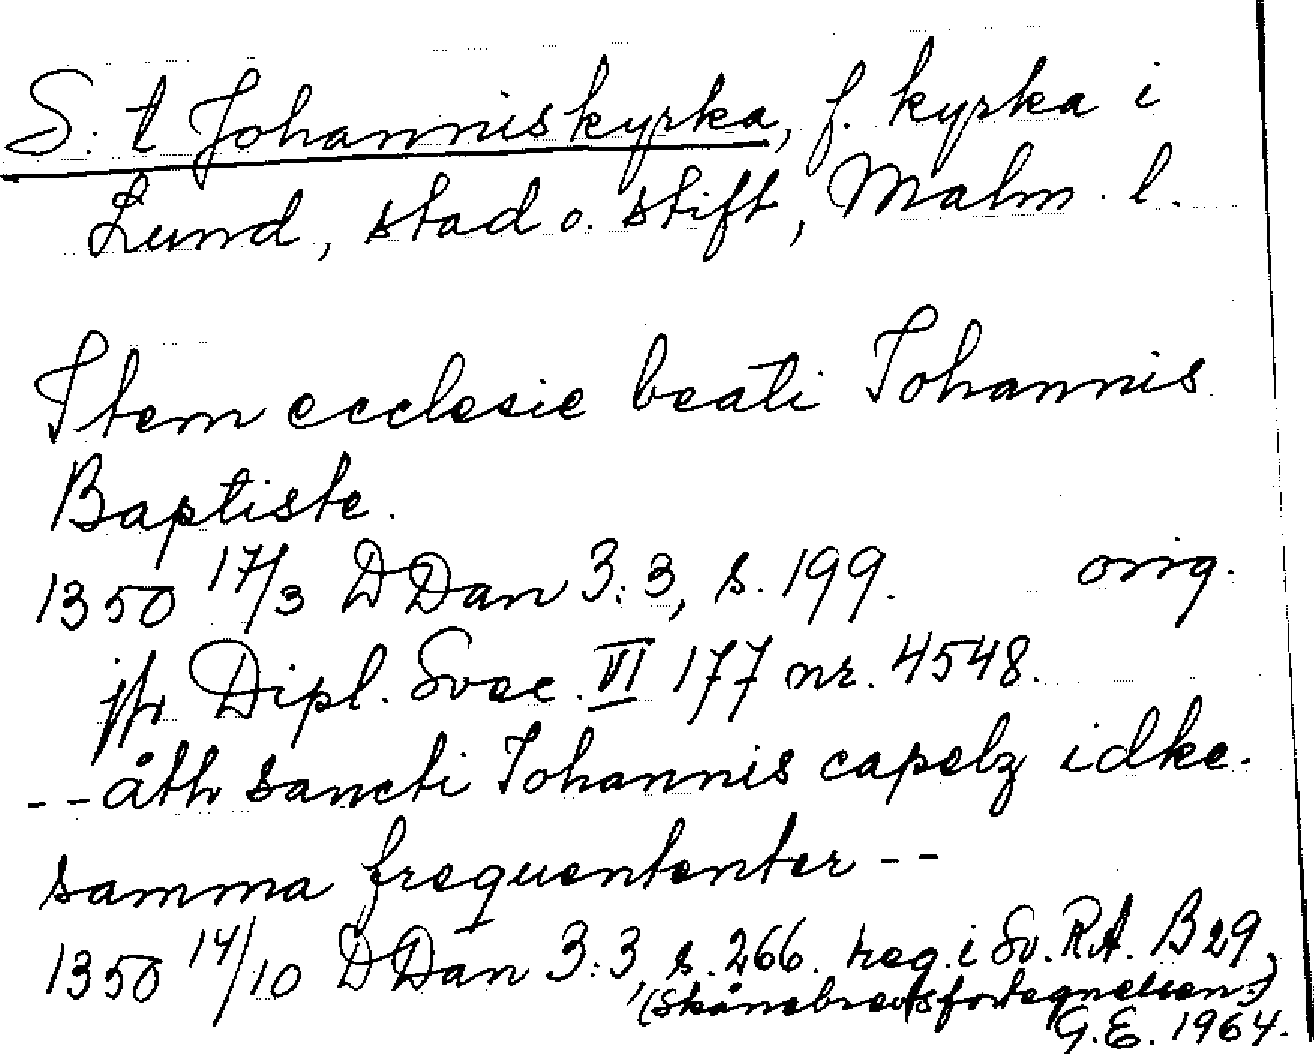 S:t Johanniskyrka, f. kyrka i
Lund, stad o. stift, Malm. l.
Item ecclesie beati Iohannis
Baptiste.
1350 17/3 DDan 3:3, s. 199. orig.
jfr Dipl. Svec. VI 177 nr. 4548.
--åth sancti Iohannis capelz idke-
samma frequententer--
1350 14/10 DDan 3:3, s. 266. reg. i Sv. RA. B29,
(Skånebrevsfortegnelsen)
G.E. 1964.